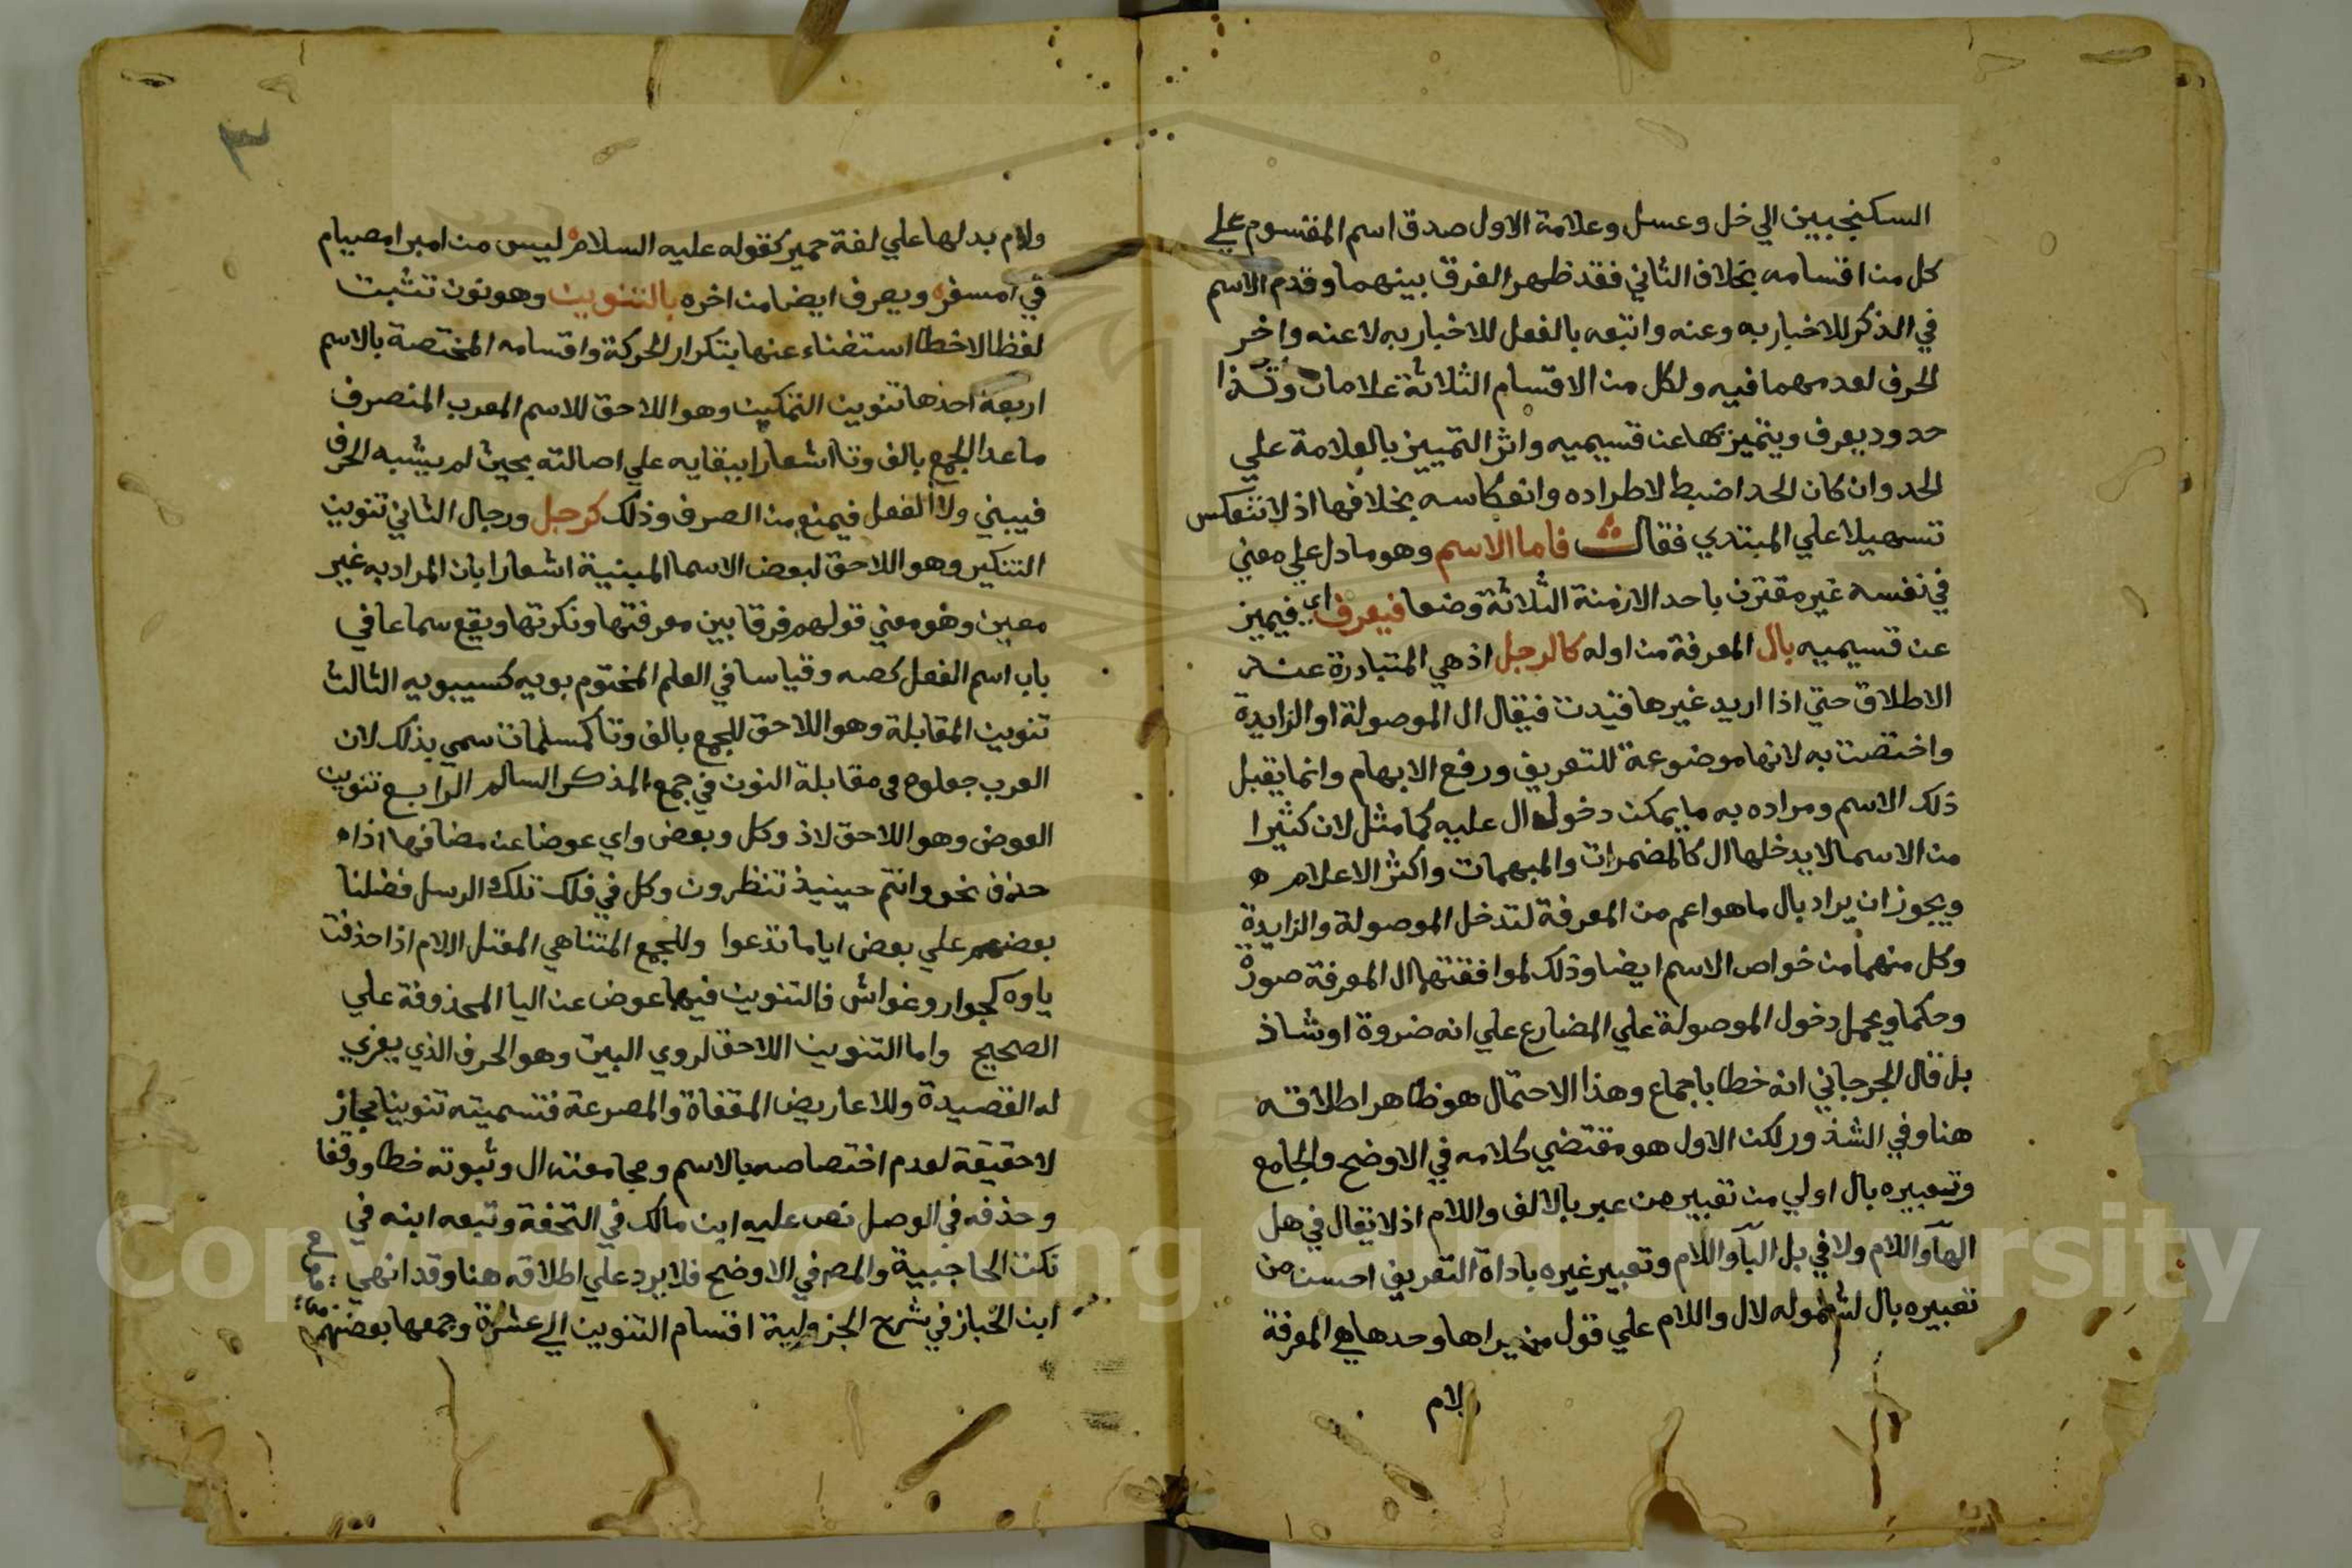 السكنجبين الي خل وعسل وعلامة الاول صدق اسم المقسوم علي
كل من اقسامه بخلاف الثاني فقد ظهر الفرق بينهما وقدم الاسم
في الذكر للاخبار به وعنه واتبعه بالفعل للاخبار به لا عنه واخر
الحرف لعدمهما فيه ولكل من الاقسام الثلاثة علامات وكذا
حدود يعرف ويتميز بها عن قسيميه واثر التمييز بالعلامة علي
الحد وان كان الحد اضبط لاطراده وانعكاسه بخلافها اذ لا تنعكس
تسهيلا علي المبتدي فقال فاما الاسم وهو ما دل علي معني
في نفسه غير مقترن باحد الازمنة الثلاثة وضعا فيعرف اي فيميز
عن قسيميه بال المعرفة من اوله كالرجل اذ هي المتبادرة عند
الاطلاق حتي اذا اريد غيرها قيدت فيقال ال الموصولة او الزايدة
واختصت به لانها موضوعة للتعريف ورفع الابهام وانما يقبل
ذلك الاسم ومراده به ما يمكن دخول ال عليه كما مثل لان كثيرا
من الاسما لا يدخلها ال كالمضمرات والمبهمات واكثر الاعلام ه
ويجوز ان يراد بال ما هو اعم من المعرفة لتدخل الموصولة والزايدة
وكل منهما من خواص الاسم ايضا وذلك لموافقتهما ال المعرفة صورة
وحكما ويحمل دخول الموصولة علي المضارع علي انه ضروة او شاذ
بل قال الجرجاني انه خطا باجماع وهذا الاحتمال هو ظاهر اطلاقه
هنا وفي الشذور لكن الاول هو مقتضي كلامه في الاوضح والجامع
وتعبيره بال اولي من تعبير من عبر بالالف واللام اذ لا يقال في هل
الهآ واللام ولا في بل البآ واللام وتعبير غيره باداة التعريف احسن من
تعبيره بال لشموله لال واللام علي قول من يراها وحدها هي المعرفة
ولام
٣
ولام بدلها علي لغة حمير كقوله عليه السلام ليس من امبر امصيام
في امسفر ويعرف ايضا من اخره بالتنوين وهو نون تثبت
لفظا لا خطا استغناء عنها بتكرار الحركة واقسامه المختصة بالاسم
اربعة احدها تنوين التمكين وهو اللاحق للاسم المعرب المنصرف
ما عدا الجمع بالف وتا اشعارا ببقايه علي اصالته بحيث لم يشبه الحرف
فيبني ولا الفعل فيمنع من الصرف وذلك كرجل ورجال الثاني تنوين
التنكير وهو اللاحق لبعض الاسما المبنية اشعارا بان المراد به غير
معين وهو معني قولهم فرقا بين معرفتها ونكرتها ويقع سماعا في
باب اسم الفعل كصه وقياسا في العلم المختوم بويه كسيبويه الثالث
تنوين المقابلة وهو اللاحق للجمع بالف وتا كمسلمات سمي بذلك لان
العرب جعلوه في مقابلة النون في جمع المذكر السالم الرابع تنوين
العوض وهو اللاحق لاذ وكل وبعض واي عوضا عن مضافها اذا
حذف نحو وانتم حينيذ تنظرون وكل في فلك تلك الرسل فضلنا
بعضهم علي بعض اياما تدعوا وللجمع المتناهي المعتل اللام اذا حذفت
ياوه كجوار وغواش فالتنوين فيها عوض عن اليا المحذوفة علي
الصحيح واما التنوين اللاحق لروي البيت وهو الحرف الذي يعزي
له القصيدة وللاعاريض المقفاة والمصرعة فتسميته تنوينا مجاز
لا حقيقة لعدم اختصاصه بالاسم ومجامعته ال وثبوته خطا ووقفا
وحذفه في الوصل نص عليه ابن مالك في التحفة وتبعه ابنه في
نكت الحاجبية والمص في الاوضح فلا يرد علي اطلاقه هنا وقد انهي
ابن الخباز في شرح الجزولية اقسام التنوين الي عشرة وجمعها بعضهم
Copyright © King Saud University
1957